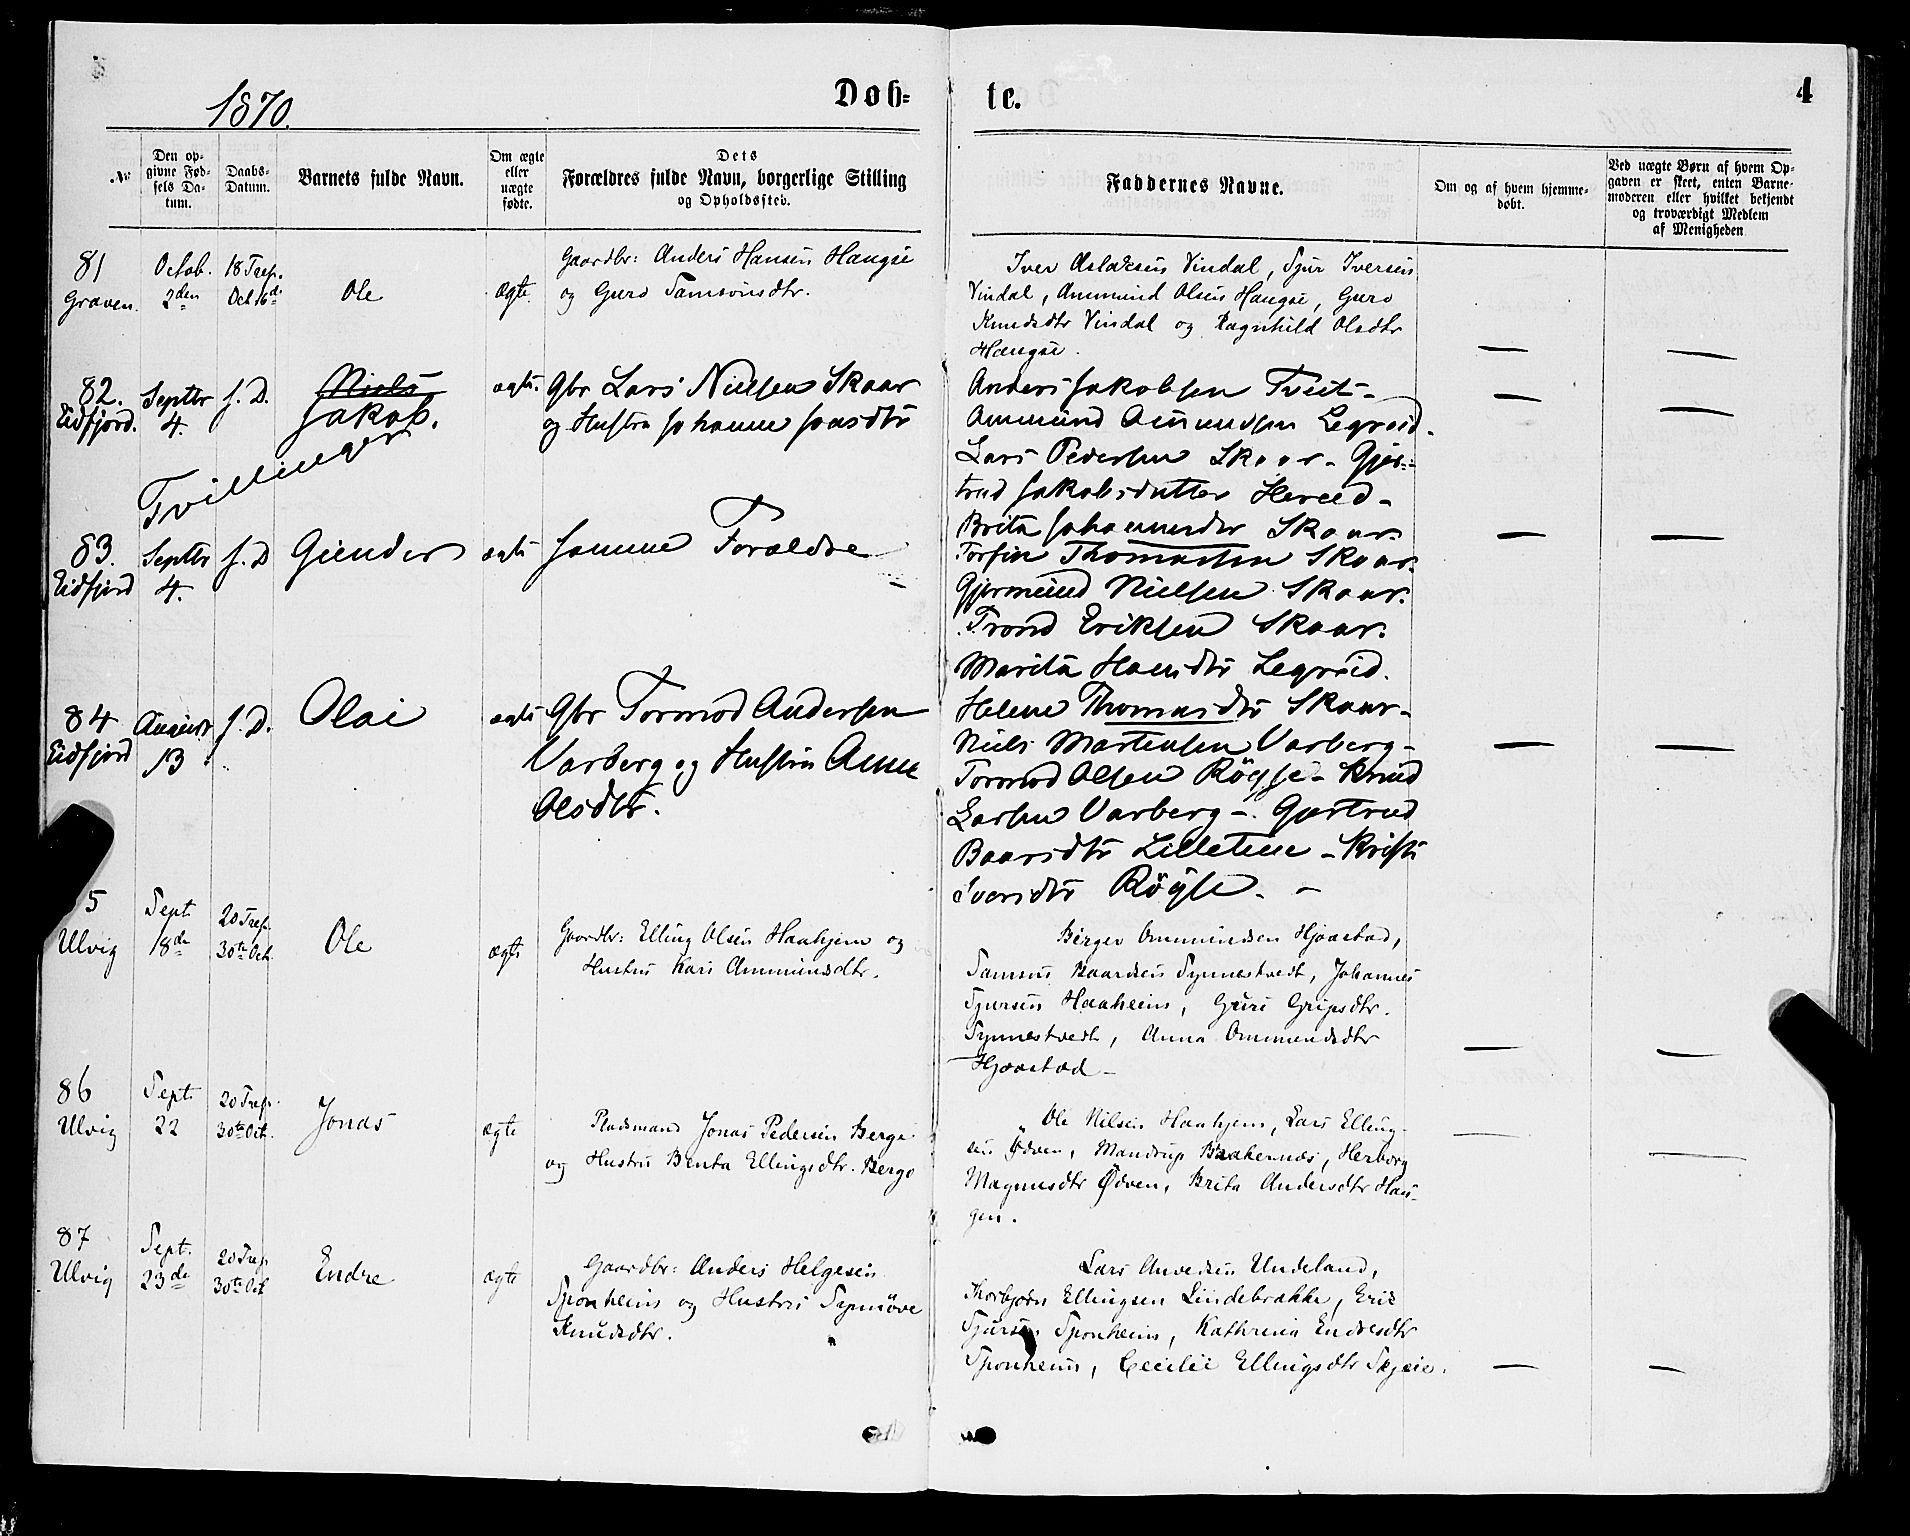 1870.
Døb-
te.
4
No
Den op-
givne Fød-
sels Da-
tum.
Daabs-
Datum.
Barnets fulde Navn.
Om ægte
eller
uægte
fødte.
Dets
Forældres fulde Navn, borgerlige Stilling
og Opholdssted.
Faddernes Navne.
Om og af hvem hjemme-
døbt.
Ved uægte Børn af hvem Op-
gaven er skeet, enten Barne-
moderen eller hvilket bekjendt
og troværdigt Medlem
af Menigheden
81
Graven.
Octob.
2den
18 Tref.
Oct 16de
Ole
Ægte.
Gaardbr: Anders Hansen Haugse
og Guro Samsonsdtr.
Iver Aslaksen Vindal, Sjur Iversen
Vindal, Ammund Olsen Haugse, Guro
Knudsdtr Vindal og Ragnhild Olsdtr
Haugse.
82.
Eidfjord.
Septbr
4.
f. D.
Niels
Jakob.
ægte.
Gbr Lars Nielsen Skaar
og Hustru Johanne
Anders Jakobsen Tveit -
Ammund Legreid -
Lars Pedersen Skaar - Gjer-
trud Jakobsdatter Hereid -
Brita Skaar -
Tvillinger
83.
Eidfjord
Septbr
4.
f. D
Giender
ægte
Samme Forældre
Torfin Thomassen Skaar.
Gjermund Nielsen Skaar.
Trond Eriksen Skaar.
Marita Hansdtr Legreid.
Helene Thomasdtr Skaar -
84
Eidfjord
August
13
f. D.
Olai
ægte
Gbr Tormod Andersen
Varberg og Hustru Anne
Olsdtr.
Niels Martensen Varberg -
Tormod Olsen Røyse - Knud
Larsen Varberg - Gjertrud
Baarsdtr Lilletune - Kristi
Iversdtr Røyse. -
5
Ulvig
Sept
18de
20 Tref.
30te Oct.
Ole
ægte
Gaardbr: Elling Olsen Haahjem og
Hustru Kari Ammundsdtr.
Birger Ommundsen Hjaastad,
Samson Baardsen Synnestvedt, Johannes
Sjursen Haaheim, Guri Gripsdtr.
Synnestvedt, Anna Ommundsdtr
Hjaastad -
86
Ulvig
Sept.
22
20 Tref.
30te Oct.
Jonas
ægte
Pladsmand Jonas Pedersen Berge
og Hustru Benta Ellingsdtr. Berge
Ole Nilsen Haahjem, Lars Elling-
sen Ødven, Mandrup Brakenæs, Herborg
Magnusdtr Ødven, Brita Andersdtr Hau-
gen.
87
Ulvig
Sept.
23de
20 Tref
30te Oct
Endre
ægte
Gaardbr: Anders Helgesen
Sponheim og Hustru Synnøve
Knudsdtr.
Lars Anvedsen Undeland,
Thorbjørn Ellingsen Lindebrække, Erik
Sjursen Sponheim, Kathrina Endresdtr
Sponheim, Cecilie Ellingsdtr Skjeie.